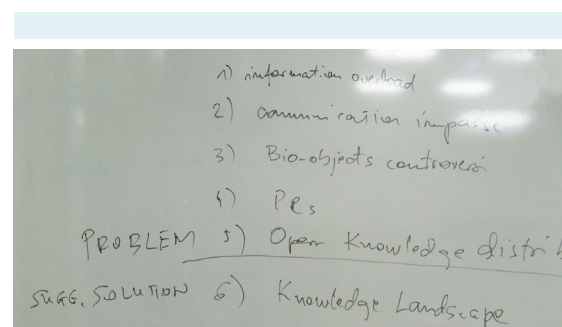 1) information overload
2) communication impasse
3) Bio-objects controversi
4) PRs
PROBLEM 5) Open Knowledge distrib
SUGG. SOLUTION 6) Knowledge Landscape